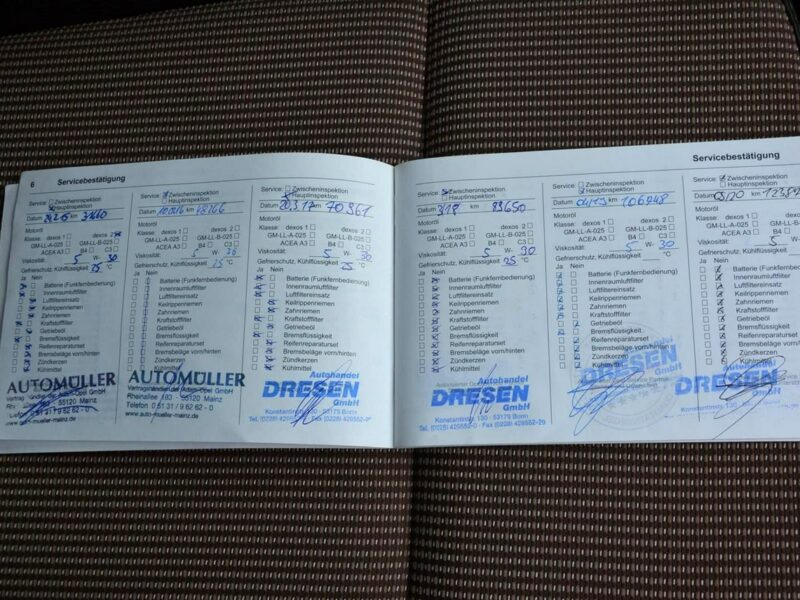 6 Servicebestätigung
Service: Zwischeninspektion
Hauptinspektion
Datum km
Motoröl
Klasse: dexos 1 dexos 2
GM-LL-A-025 GM-LL-B-025
ACEA A3 B4 C3
Viskosität: 5 W- 30
Gefrierschutz, Kühlflüssigkeit 25 °C
Ja Nein
Batterie (Funkfernbedienung)
Innenraumluftfilter
Luftfiltereinsatz
Keilrippenriemen
Zahnriemen
Kraftstofffilter
Getriebeöl
Bremsflüssigkeit
Reifenreparaturset
Bremsbeläge vorn/hinten
Zündkerzen
Kühlmittel
AUTOMÜLLER
55120 Mainz
www.auto-mueller-mainz.de
Service: Zwischeninspektion
Hauptinspektion
Datum km
Motoröl
Klasse: dexos 1 dexos 2
GM-LL-A-025 GM-LL-B-025
ACEA A3 B4 C3
Viskosität: 5 W-
Gefrierschutz, Kühlflüssigkeit °C
Ja Nein
Batterie (Funkfernbedienung)
Innenraumluftfilter
Luftfiltereinsatz
Keilrippenriemen
Zahnriemen
Kraftstofffilter
Getriebeöl
Bremsflüssigkeit
Reifenreparaturset
Bremsbeläge vorn/hinten
Zündkerzen
Kühlmittel
AUTOMÜLLER
Rheinallee 183 - 55120 Mainz
Telefon 0 61 31 / 9 62 62 - 0
www.auto-mueller-mainz.de
Service: Zwischeninspektion
Hauptinspektion
Datum 20.3.17 km 70961
Motoröl
Klasse: dexos 1 dexos 2
GM-LL-A-025 GM-LL-B-025
ACEA A3 B4 C3
Viskosität: 5 W- 30
Gefrierschutz, Kühlflüssigkeit 25 °C
Ja Nein
Batterie (Funkfernbedienung)
Innenraumluftfilter
Luftfiltereinsatz
Keilrippenriemen
Zahnriemen
Kraftstofffilter
Getriebeöl
Bremsflüssigkeit
Reifenreparaturset
Bremsbeläge vorn/hinten
Zündkerzen
Kühlmittel
Autohandel
DRESEN
GmbH
Servicebestätigung
Service: Zwischeninspektion
Hauptinspektion
Datum 3.18 km 93650
Motoröl
Klasse: dexos 1 dexos 2
GM-LL-A-025 GM-LL-B-025
ACEA A3 B4 C3
Viskosität: 5 W- 30
Gefrierschutz, Kühlflüssigkeit 25 °C
Ja Nein
Batterie (Funkfernbedienung)
Innenraumluftfilter
Luftfiltereinsatz
Keilrippenriemen
Zahnriemen
Kraftstofffilter
Getriebeöl
Bremsflüssigkeit
Reifenreparaturset
Bremsbeläge vorn/hinten
Zündkerzen
Kühlmittel
Autohandel
DRESEN
GmbH
Service: Zwischeninspektion
Hauptinspektion
Datum km 106948
Motoröl
Klasse: dexos 1 dexos 2
GM-LL-A-025 GM-LL-B-025
ACEA A3 B4 C3
Viskosität: 5 W- 30
Gefrierschutz, Kühlflüssigkeit °C
Ja Nein
Batterie (Funkfernbedienung)
Innenraumluftfilter
Luftfiltereinsatz
Keilrippenriemen
Zahnriemen
Kraftstofffilter
Getriebeöl
Bremsflüssigkeit
Reifenreparaturset
Bremsbeläge vorn/hinten
Zündkerzen
Kühlmittel
Autohandel
DRESEN
GmbH
Service: Zwischeninspektion
Hauptinspektion
Datum km
Motoröl
Klasse: dexos 1
GM-LL-A-025
ACEA A3
Viskosität: 5
Gefrierschutz, Kühlflüssigkeit
Ja Nein
Innenraumluftfilter
Luftfiltereinsatz
Keilrippenriemen
Zahnriemen
Kraftstofffilter
Getriebeöl
Bremsflüssigkeit
Reifenreparaturset
Zündkerzen
Kühlmittel
DRESEN
GmbH